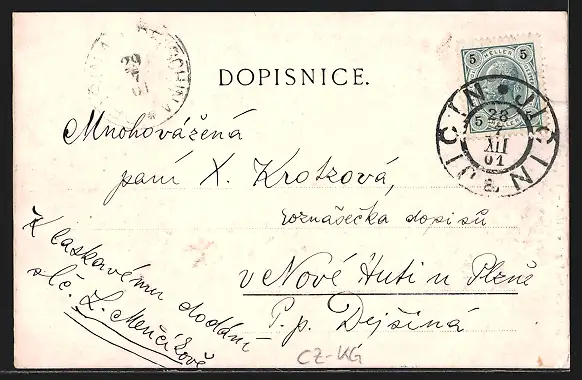 DOPISNICE.
5 HELLER 5
5
JIČIN * JIČIN
28
XII
01
29
01
Mnohovážená
paní X. Krotzová,
roznášečka dopisů
v Nové Huti u Plzně
P. p. Dejšiná
K laskavému dodání
slč. L. Menčíkové
CZ-KG